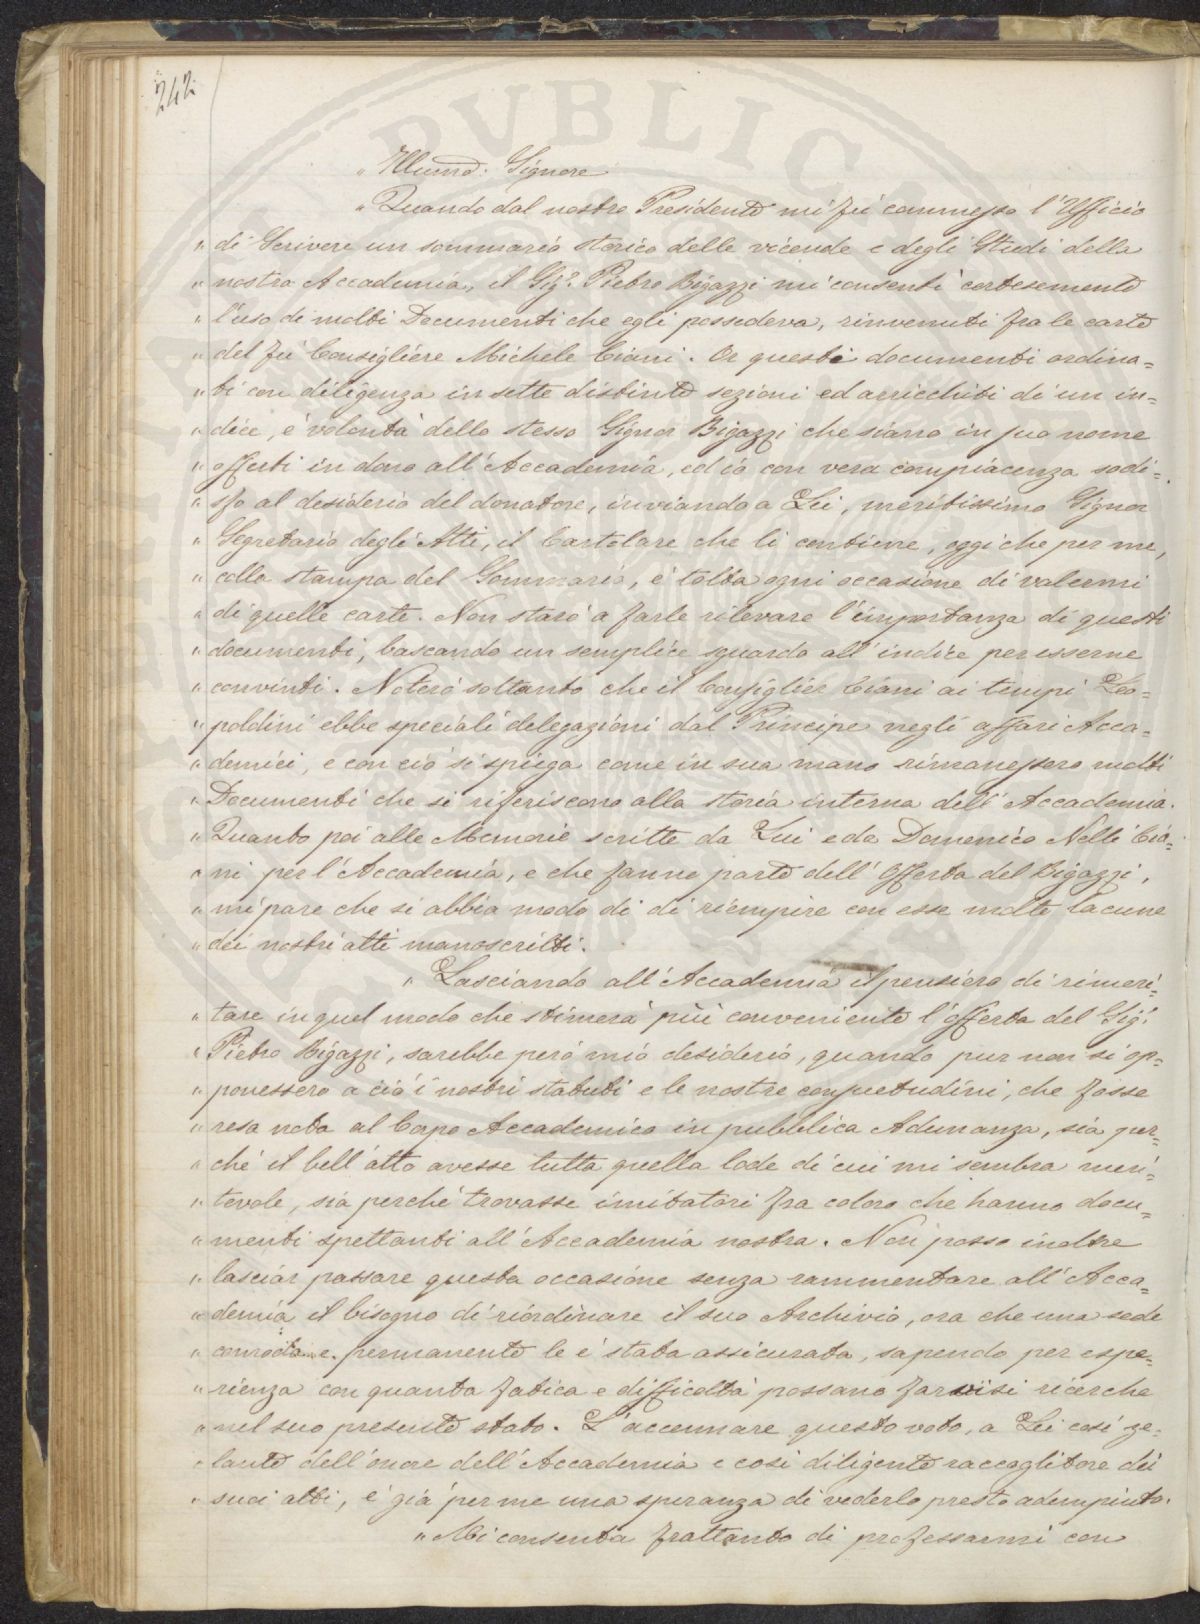 242
PVBLICA
„ Illumo. Signore
„ Quando dal nostro Presidente mi fù commesso l'Ufficio
„ di Scrivere un sommario storico delle vicende e degli Studi della
„ nostra Accademia, il Sigr. Pietro Bigazzi mi consentì cortesemente
„ l'uso di molti Documenti che egli possedeva, rinvenuti fra le carte
„ del fù Consigliere Michele Ciani. Or questi documenti ordina=
„ ti con diligenza in sette distinte sezioni ed arricchiti di un in=
„ dice, è volontà dello stesso Signor Bigazzi che siano in suo nome
„ offerti in dono all'Accademia, ed io con vera compiacenza sodi=
„ sfo al desiderio del donatore, inviando a Lei, meritissimo Signor
„ Segretario degli Atti, il Cartolare che li contiene, oggi che per me,
„ colla stampa del Sommario, è tolta ogni occasione di valermi
„ di quelle carte. Non starò a farle rilevare l'importanza di questi
„ documenti, bastando un semplice sguardo all'indice per esserne
„ convinti. Noterò soltanto che il Consiglier Ciani ai tempi Leo=
„ poldini ebbe speciali delegazioni dal Principe negli affari Acca=
„ demici, e con ciò si spiega come in sua mano rimanessero molti
„ Documenti che si riferiscono alla storia interna dell'Accademia.
„ Quanto poi alle Memorie scritte da Lui e da Domenico Nelli Cia=
„ ni per l'Accademia, e che fanno parte dell'Offerta del Bigazzi,
„ mi pare che si abbia modo di di riempire con esse molte lacune
„ dei nostri atti manoscritti.
„ Lasciando all'Accademia il pensiero di rimeri=
„ tare in quel modo che stimerà più conveniente l'offerta del Sigr.
„ Pietro Bigazzi, sarebbe però mio desiderio, quando pur non si op=
„ ponessero a ciò i nostri statuti e le nostre consuetudini, che fosse
„ resa nota al Corpo Accademico in pubblica Adunanza, sia per=
„ chè il bell'atto avesse tutta quella lode di cui mi sembra meri=
„ tevole, sia perchè trovasse imitatori fra coloro che hanno docu=
„ menti spettanti all'Accademia nostra. Non posso inoltre
„ lasciar passare questa occasione senza rammentare all'Acca=
„ demia il bisogno di riordinare il suo Archivio, ora che una sede
„ comoda e permanente le è stata assicurata, sapendo per espe=
„ rienza con quanta fatica e difficoltà possano farvisi ricerche
„ nel suo presente stato. L'accennare questo voto, a Lei così ze=
„ lante dell'onore dell'Accademia e così diligente raccoglitore dei
„ suoi atti, è già per me una speranza di vederlo presto adempiuto.
„ Mi consenta frattanto di professarmi con